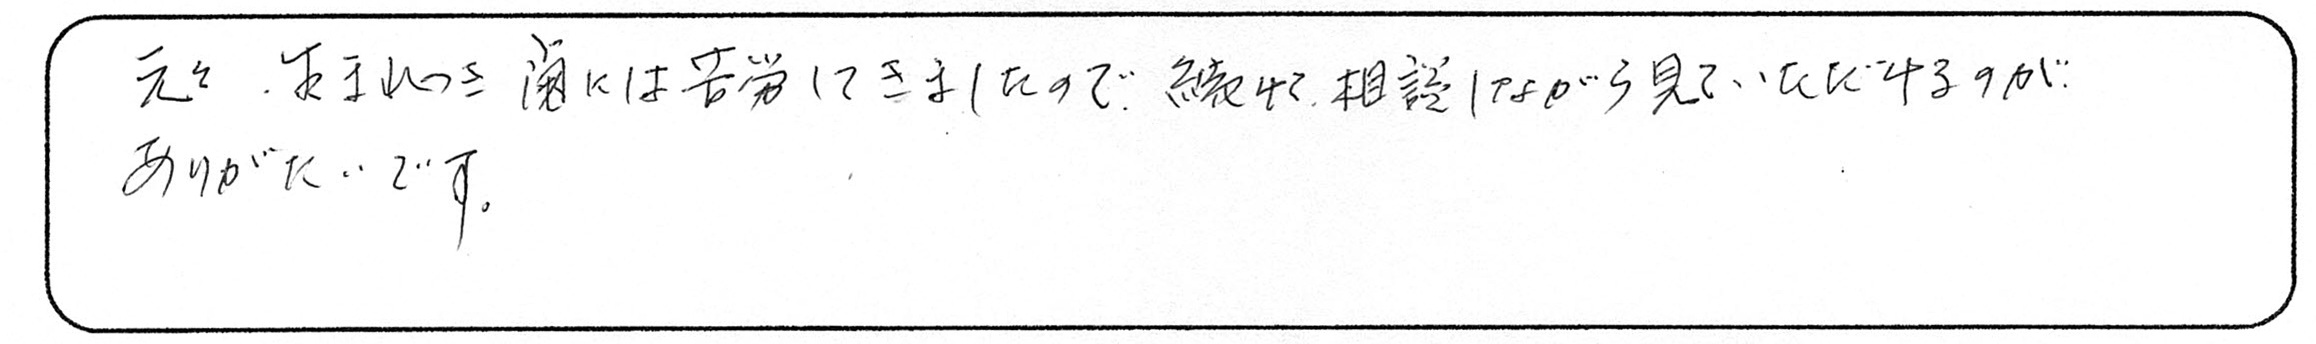 元々、生まれつき歯には苦労してきましたので、続けて、相談しながら見ていただけるのが、
ありがたいです。